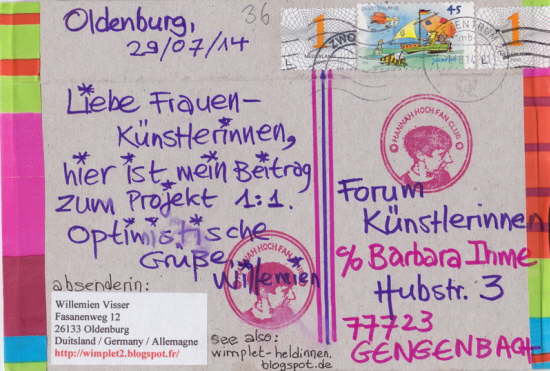 Oldenburg,
29/07/14
36
1
45
1
Liebe Frauen-
Künstlerinnen,
hier ist mein Beitrag
zum Projekt 1:1.
Optimistische
Grüße,
Willemien
HANNAH HÖCH FAN CLUB
HANNAH HÖCH FAN CLUB
Forum
Künstlerinnen
c/o Barbara Ihme
Hubstr. 3
77723
GENGENBACH
absenderin:
Willemien Visser
Fasanenweg 12
26133 Oldenburg
Duitsland / Germany / Allemagne
http://wimplet2.blogspot.fr/
see also:
wimplet-heldinnen.
blogspot.de